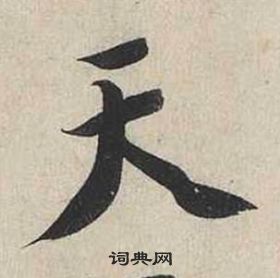 天
词典网